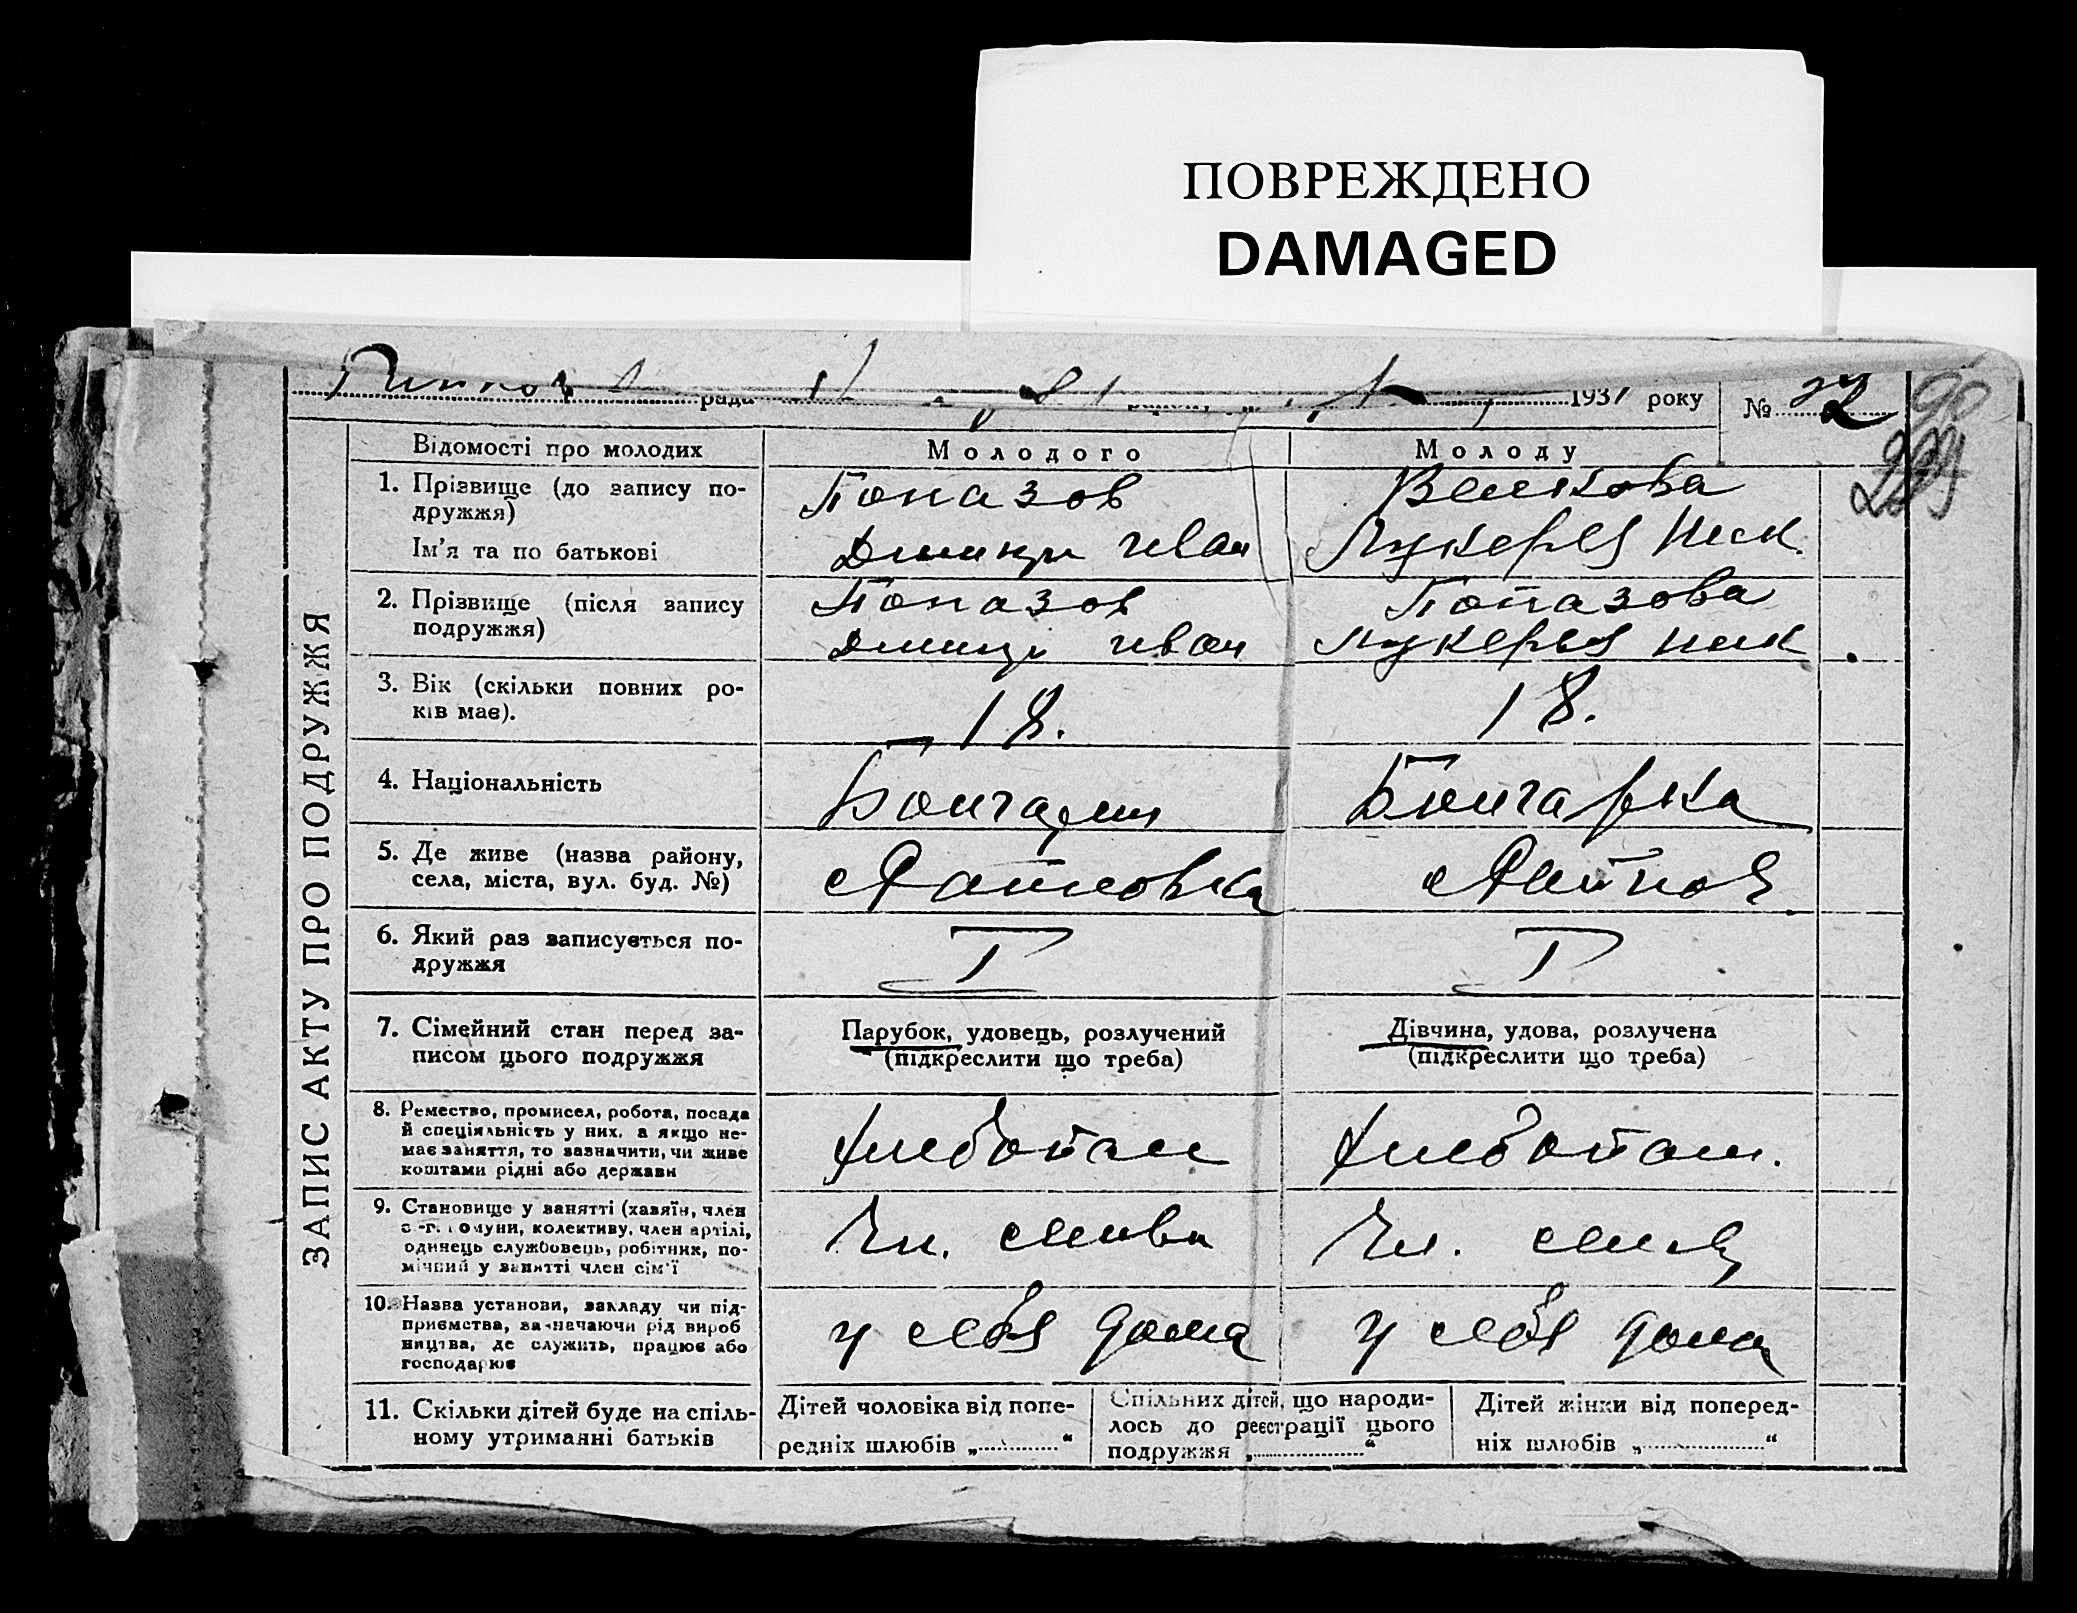 ПОВРЕЖДЕНО
DAMAGED
рада 1937 року №
ЗАПИС АКТУ ПРО ПОДРУЖЖЯ
Відомості про молодих
Молодого
Молоду
1. Прізвище (до запису по-
дружжя)
Ім'я та по батькові
Попазов
Дмитр Иван
Велкова
Лукерья Ник.
2. Прізвище (після запису
подружжя)
Попазов
Дмитр Иван
Попазова
Лукерья Ник
3. Вік (скільки повних ро-
ків має).
18.
18.
4. Національність
Болгарин
Болгарка
5. Де живе (назва району,
села, міста, вул. буд. №)
6. Який раз записується по-
дружжя
I
I
7. Сімейний стан перед за-
писом цього подружжя
Парубок, удовець, розлучений
(підкреслити що треба)
Дівчина, удова, розлучена
(підкреслити що треба)
8. Ремество, промисел, робота, посада
й спеціяльність у них, а якщо не-
має заняття, то зазначити, чи живе
коштами рідні або держави
хлебопаш
хлебопаш.
9. Становище у занятті (хазяїн, член
с.-г. комуни, колективу, член артілі,
одинець службовець, робітник, по-
мічний у занятті член сім'ї
Чл.
Чл.
10. Назва установи, закладу чи під-
приємства, зазначаючи рід вироб
ництва, де служить, працює або
господарює
у себя дома
у себя дома
11. Скільки дітей буде на спіль-
ному утриманні батьків
Дітей чоловіка від попе-
редніх шлюбів „..........“
Спільних дітей, що народи-
лось до реєстрації цього
подружжя „..........“
Дітей жінки від поперед-
ніх шлюбів „..........“